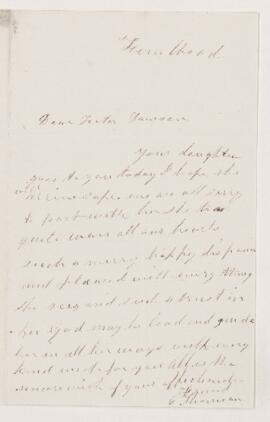 Fernwood
Dear Doctor Dawson
Your daughter
goes to you today I hope she
will arrive safe we are all sorry
to part with her she has
quite won all our hearts
such a merry happy disposition
and pleased with every thing
she and such a trust in
her God may he lead and guide
her in all her ways with every
kind wish for you all is the
sincere wish of your affectionate
friend